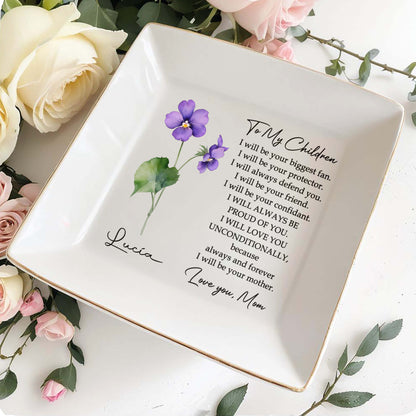 To My Children
I will be your biggest fan.
I will be your protector.
I will always defend you.
I will be your friend.
I will be your confidant.
I WILL ALWAYS BE
PROUD OF YOU.
I WILL LOVE YOU
UNCONDITIONALLY,
because
always and forever
I will be your mother.
Love you, Mom
Lucía